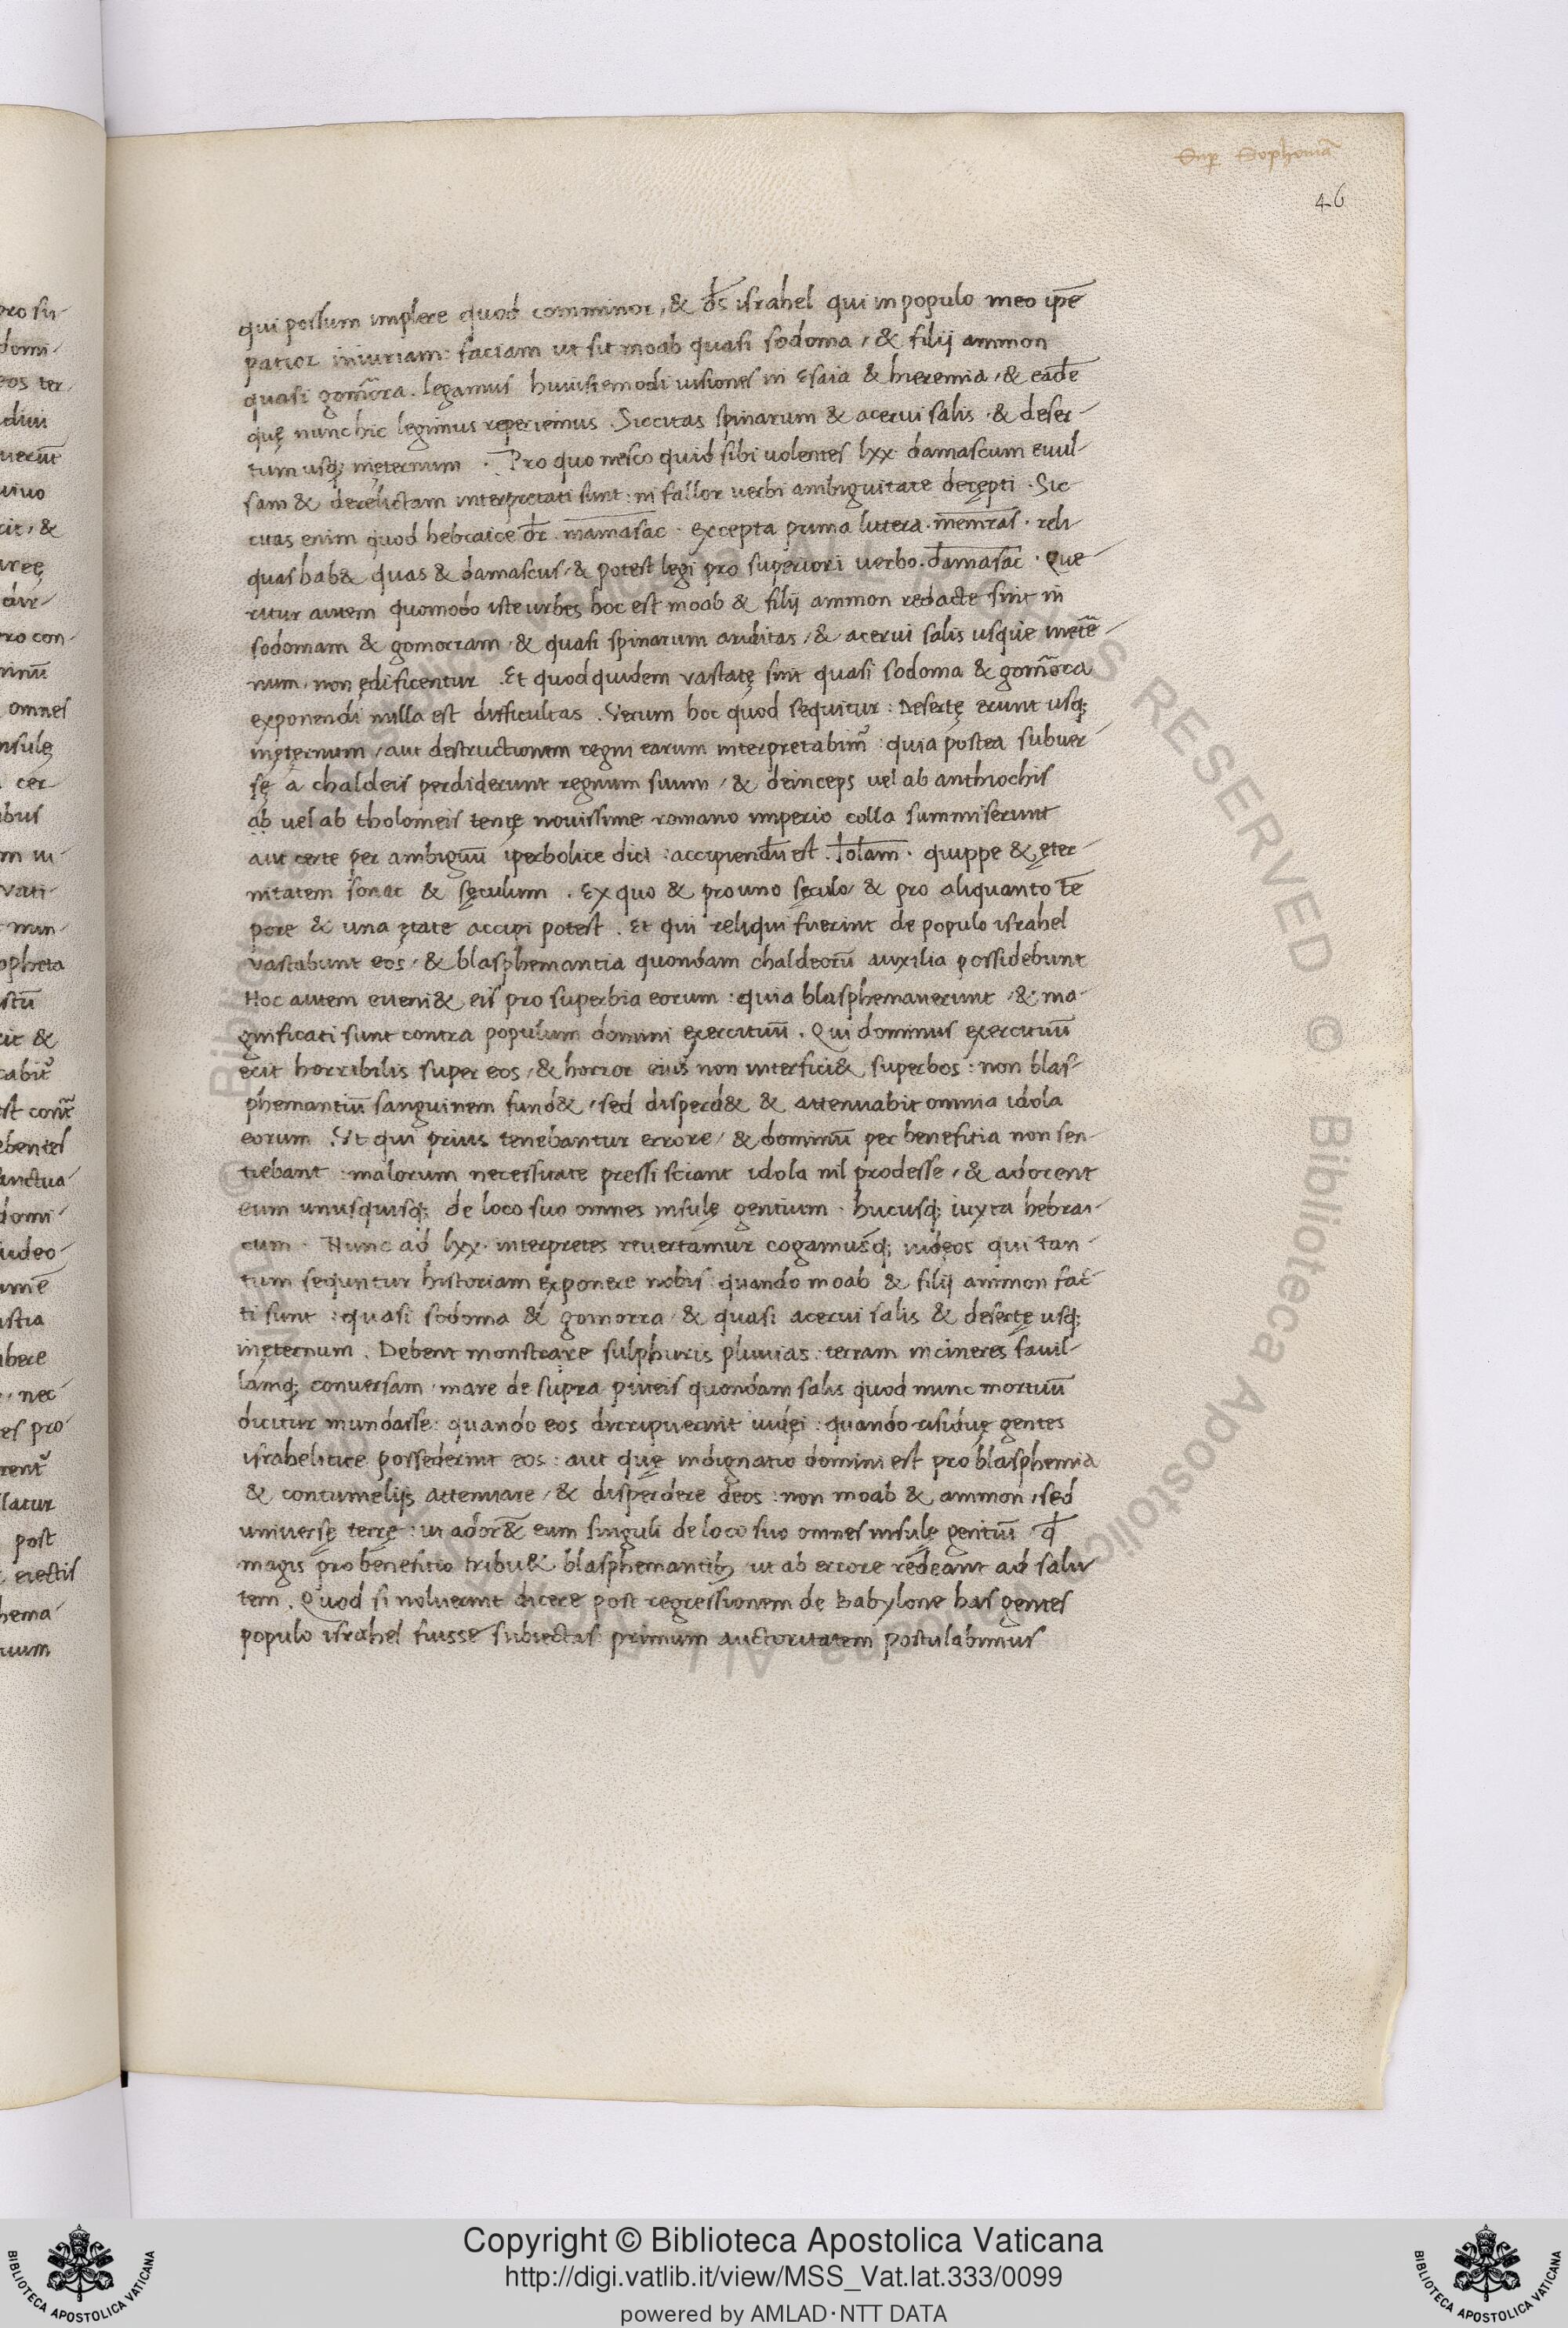 Sup Sophoniā
46
qui possum implere quod comminor, & d̄s israhel qui in populo meo ip̄e
patior iniuriam: faciam ut sit moab quasi sodoma, & filij ammon
quasi gom̄ora. legamus huiuscemodi visiones in Esaia & hieremia, & eadē
quę nunc hic legimus reperiemus. Siccitas spinarum & acervi salis & deser-
tum usq; inęternum. Pro quo nesco quid sibi volentes lxx damascum evul-
sam & derelictam interpretati sunt: ni fallor verbi ambiguitate decepti. Sic
citas enim quod hebraice dr̄ mamasac. excepta prima littera. memras. reli-
quas hab& quas & damascus, & potest legi pro superiori verbo. damasac. Que-
ritur autem quomodo iste urbes hoc est moab & filij ammon redacte sint in
sodomam & gomorram, & quasi spinarum ariditas, & acervi salis usque inetē-
num, non ędificentur. Et quod quidem vastatę sint quasi sodoma & gom̄ora
exponendi nulla est difficultas. Verum hoc quod sequitur: Desertę erunt usq;
inęternum, aut destructionem regni earum interpretabim⁹: quia postea subver-
sę a chaldeis perdiderunt regnum suum, & deinceps vel ab anthiochis
ab vel ab tholomeis tentę novissime romano imperio colla summiserunt
aut certe per ambiguū iperbolice dici: accipiendū est. Iolam. quippe & ęter-
nitatem sonat & sęculum. Ex quo & pro uno sęculo, & pro aliquanto tē
pore & una ętate accipi potest. Et qui reliqui fuerint de populo israhel
vastabunt eos, & blasphemantia quondam chaldeorū auxilia possidebunt
Hoc autem eveni& eis pro superbia eorum: quia blasphemaverunt, & ma-
gnificati sunt contra populum domini exercituū. Qui dominus exercituū
erit horribilis super eos, & horror eius non interfici& superbos: non blas-
phemantiū sanguinem fund&, sed disperd& & attenuabit omnia idola
eorum. Ut qui prius tenebantur errore, & dominū per benefitia non sen-
tiebant: malorum necessitate pressi sciant idola nil prodesse, & adorent
eum unusquisq; de loco suo omnes insulę gentium. hucusq; iuxta hebrai-
cum. Nunc ad lxx. interpretes revertamur cogamusq; iudęos qui tan-
tum sequntur historiam exponere nobis: quando moab & filij ammon fac-
ti sunt: quasi sodoma & gomorra & quasi acervi salis & desertę usq;
inęternum. Debent monstrare sulphuris pluvias: terram in cineres favil-
lamq; conversam, mare de supra puteis quondam salis quod nunc mortuū
dicitur mundasse: quando eos diripuerint iudęi: quando residuę gentes
israhelitice possederint eos: aut quę indignatio domini est pro blasphemia
& contumelijs attenuare, & disperdere deos: non moab & ammon, sed
universę terrę: ut ador& eum singuli de loco suo omnes insulę gentiū, qđ
magis pro benefitio tribu& blasphemantib; ut ab errore redeant ad salu-
tem. Quod si noluerint dicere post regressionem de Babylone has gentes
populo israhel fuisse subiectas: primum auctoritatem postulabimus
Copyright © Biblioteca Apostolica Vaticana
http://digi.vatlib.it/view/MSS_Vat.lat.333/0099
powered by AMLAD·NTT DATA